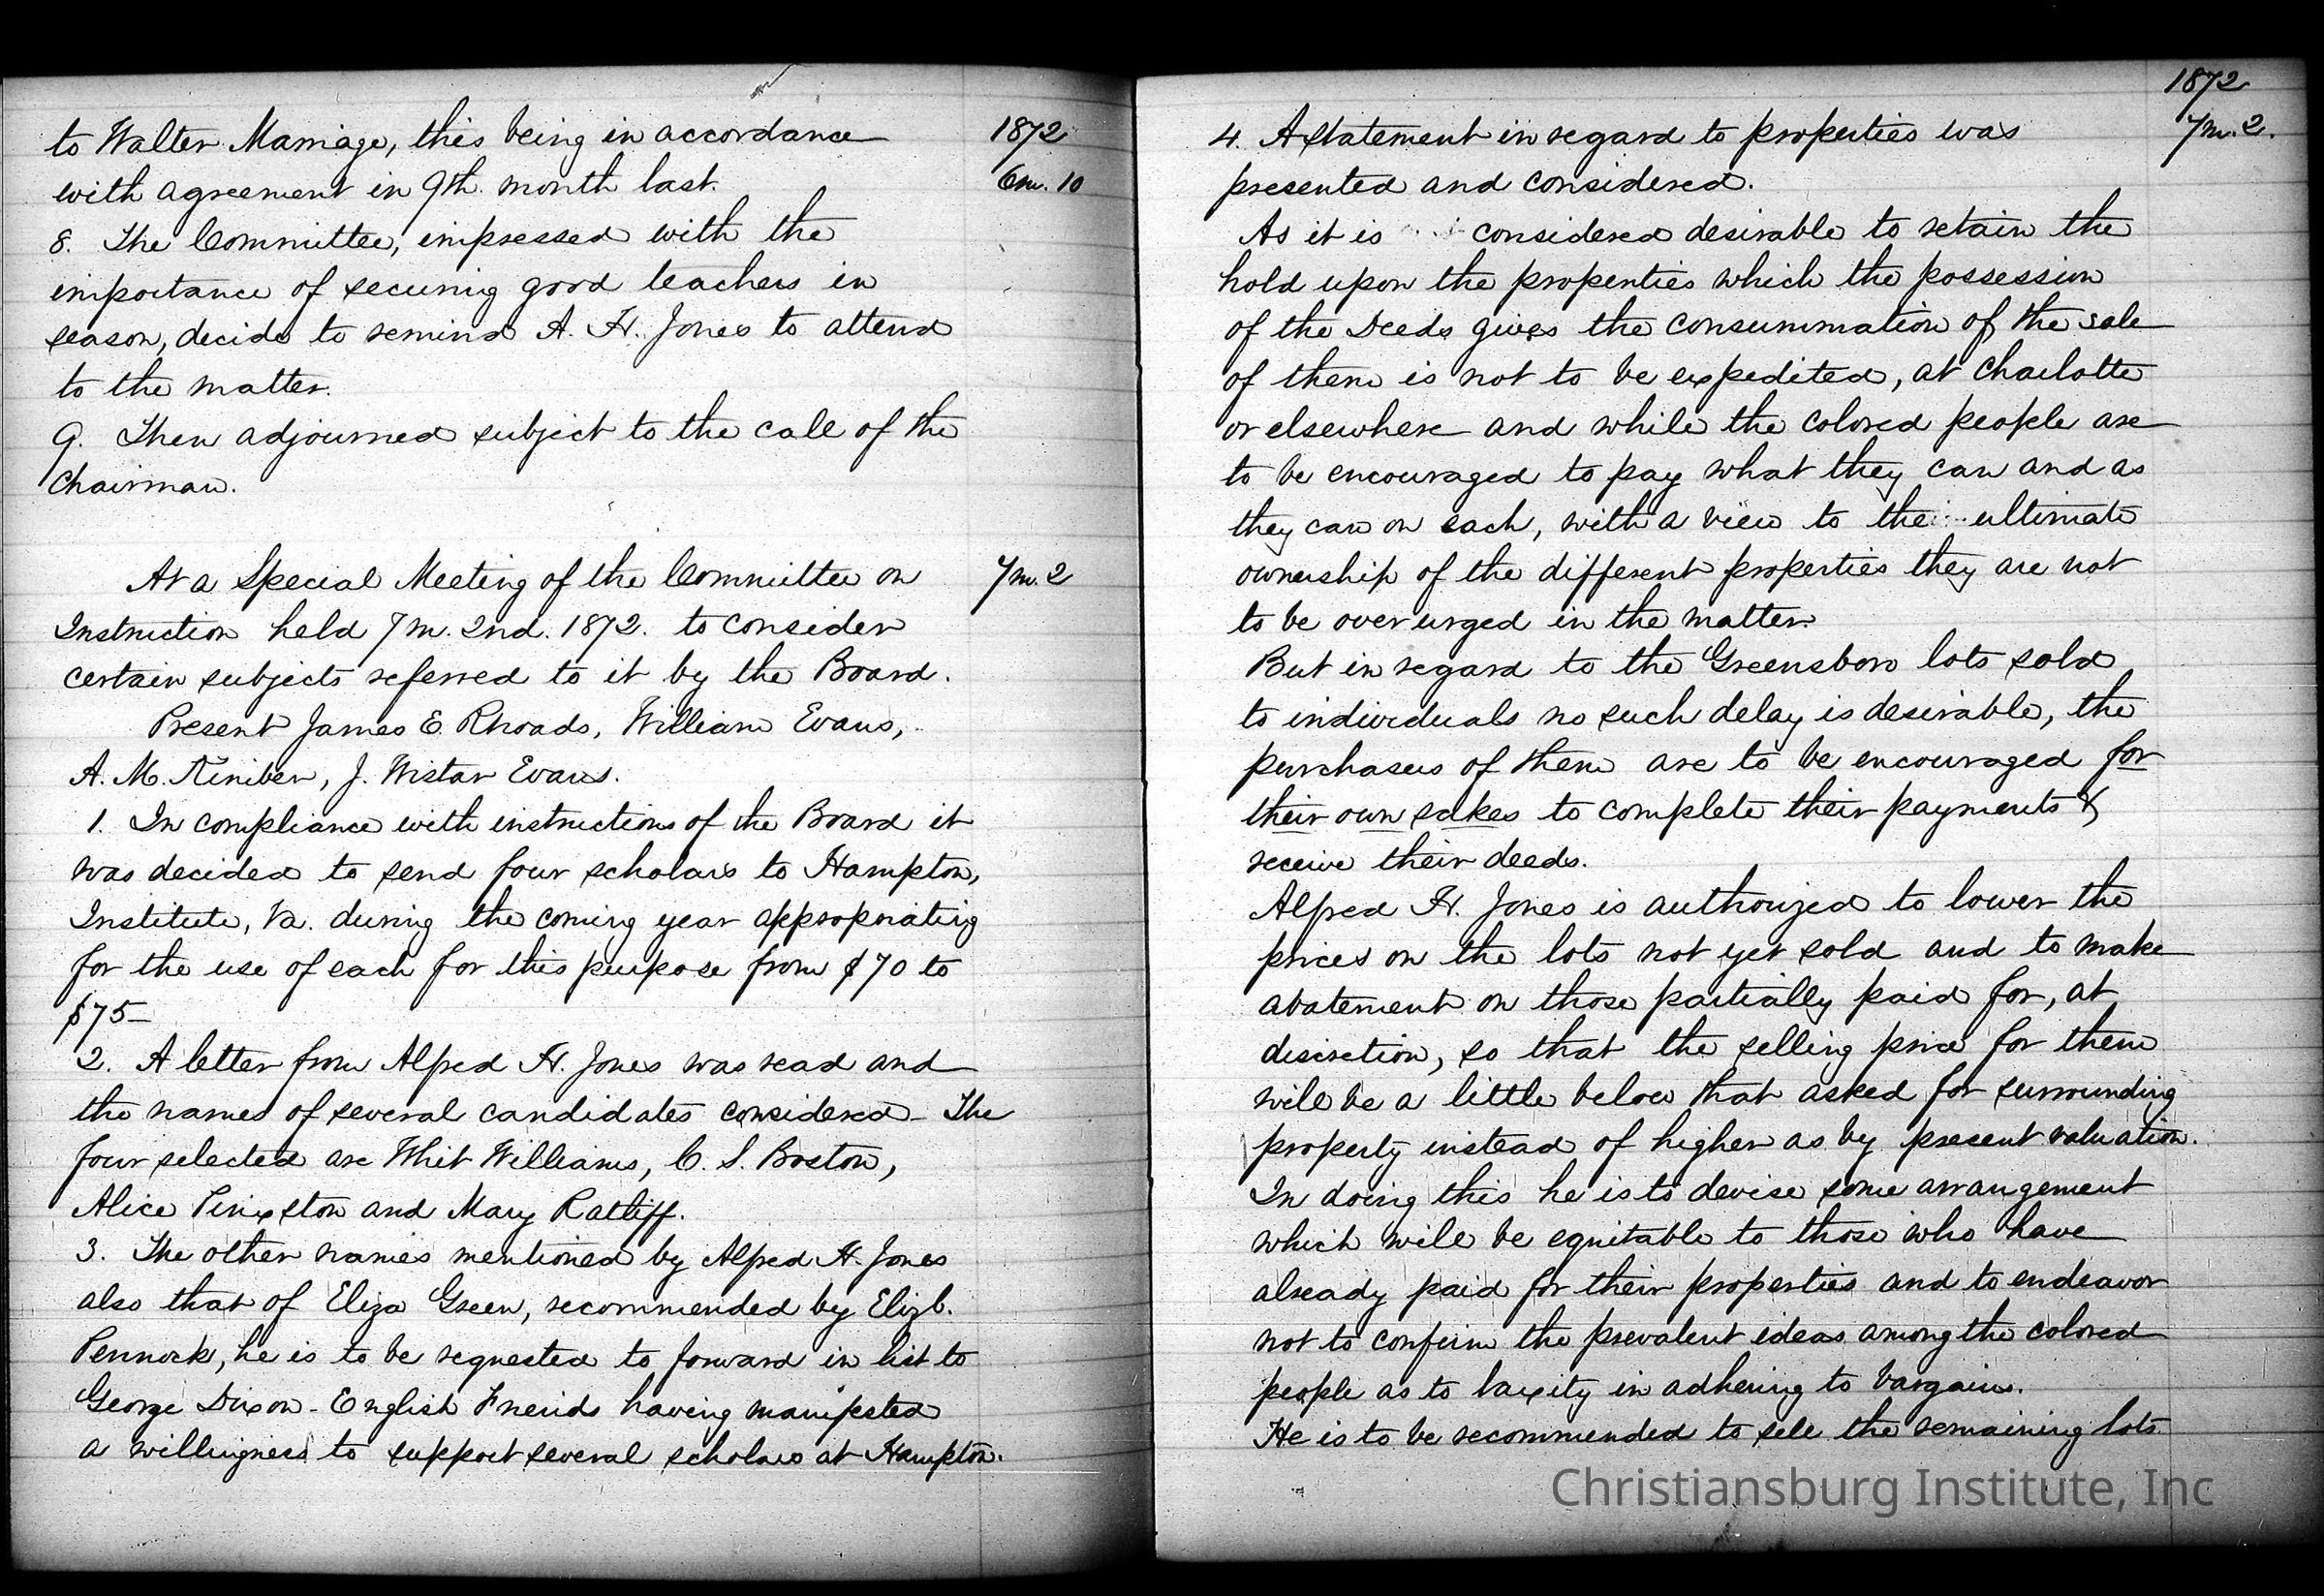 to Walter Marriage, this being in accordance
1872
with agreement in 9th. month last.
6m. 10
8. The Committee, impressed with the
importance of securing good teachers in
season, decide to remind A. H. Jones to attend
to the matter.
9. Then adjourned subject to the call of the
Chairman.
At a Special Meeting of the Committee on
7m. 2
Instruction held 7m. 2nd. 1872. to consider
certain subjects referred to it by the Board.
Present James E. Rhoads, William Evans,
A. M. Kimber, J. Wistar Evans.
1. In compliance with instructions of the Board it
was decided to send four scholars to Hampton,
Institute, Va. during the coming year appropriating
for the use of each for this purpose from $70 to
$75-
2. A letter from Alfred H. Jones was read and
the names of several candidates considered - The
four selected are Whit Williams, C. S. Boston,
Alice Pinixton and Mary Ratliff.
3. The other names mentioned by Alfred H. Jones
also that of Eliza Green, recommended by Elizb.
Pennock, he is to be requested to forward in list to
George Dixon - English Friends having manifested
a willingness to support several scholars at Hampton.
1872
7m. 2.
4. A statement in regard to properties was
presented and considered.
As it is considered desirable to retain the
hold upon the properties which the possession
of the Deeds gives the consummation of the sale
of them is not to be expedited, at Charlotte
or elsewhere and while the colored people are
to be encouraged to pay what they can and as
they can on each, with a view to the ultimate
ownership of the different properties they are not
to be over urged in the matter.
But in regard to the Greensboro lots sold
to individuals no such delay is desirable, the
purchasers of them are to be encouraged for
their own sakes to complete their payments &
receive their deeds.
Alfred H. Jones is authorized to lower the
prices on the lots not yet sold and to make
abatement on those partially paid for, at
discretion, so that the selling price for them
will be a little below that asked for surrounding
property instead of higher as by present valuation.
In doing this he is to devise some arrangement
which will be equitable to those who have
already paid for their properties and to endeavor
not to confirm the prevalent ideas among the colored
people as to laxity in adhering to bargains.
He is to be recommended to sell the remaining lots
Christiansburg Institute, Inc